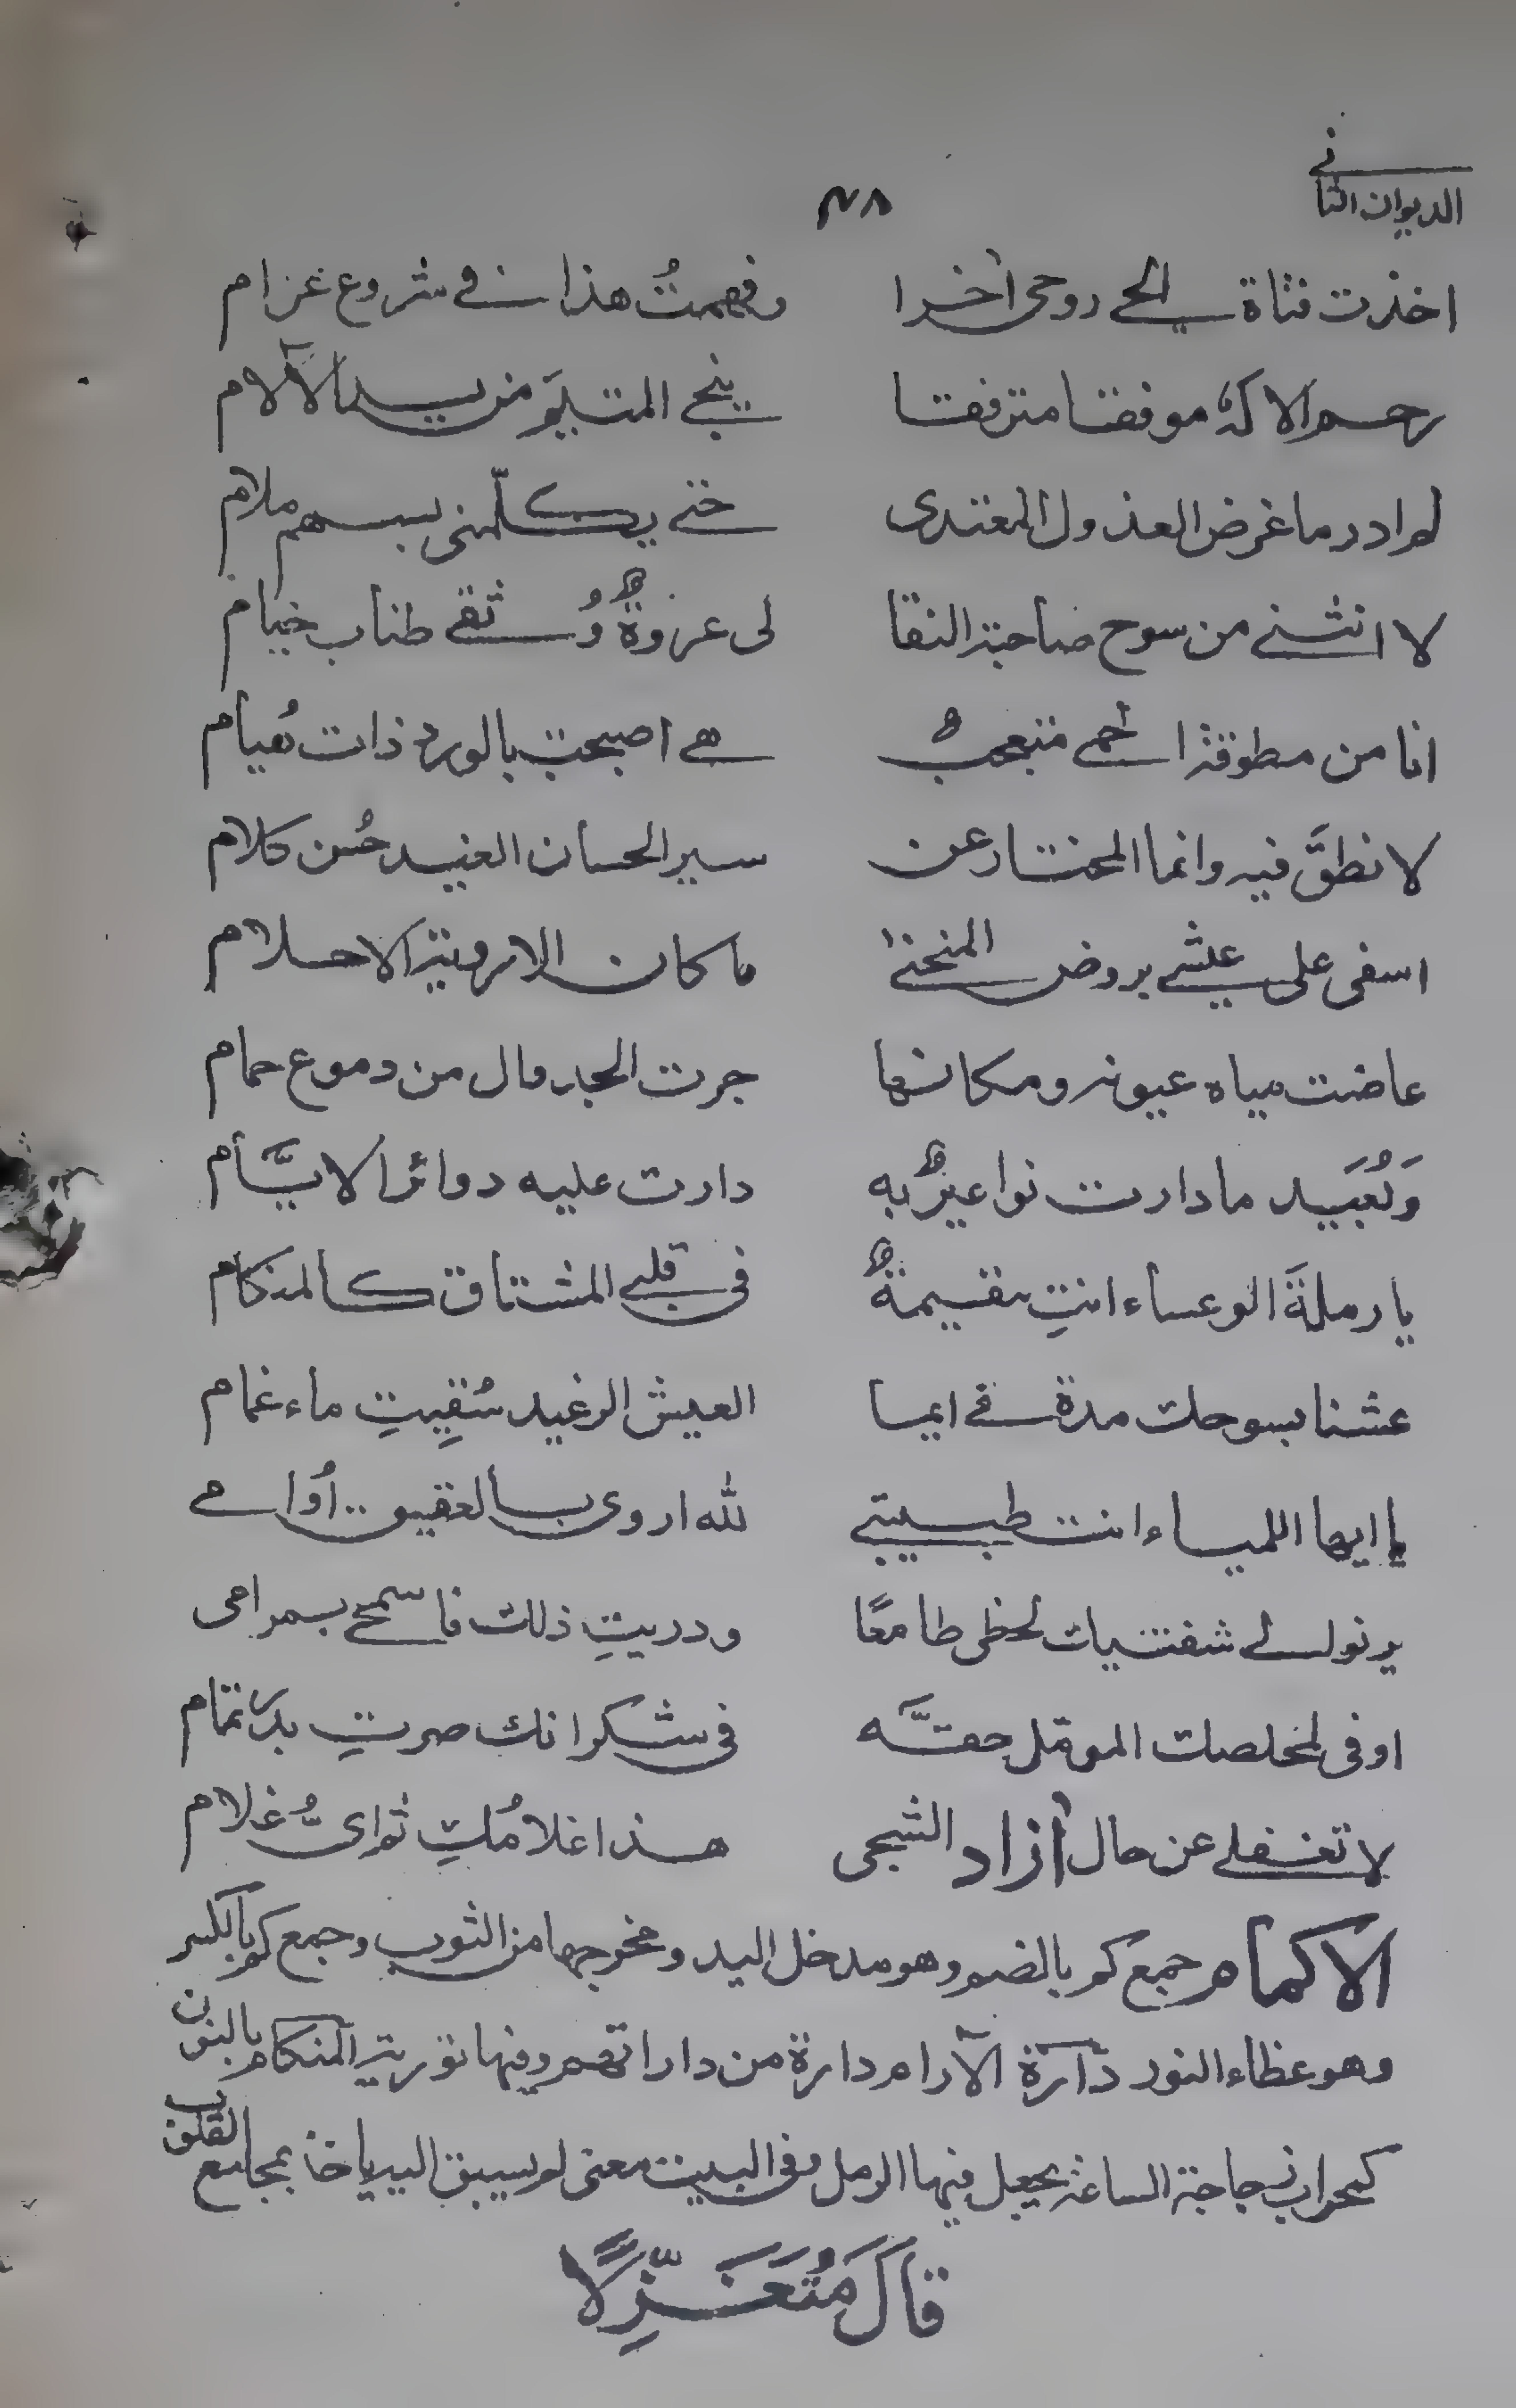 الديوان الثاني
٢٨
اخذت فتاة الحي روحي أخرا وفهمتُ هذا في شروع غرام
رحم الاله موفقا مترفقا ينجي المتيَّم من يد الآلام
لم ادر ما غرض العذول المعتدى حتى يكلّمنى بسهم ملام
لا انثنى من سوح صاحبة النقا لى عروةٌ وُثقى طناب خيام
انا من مطوقة الحمى متعجبٌ هي اصبحت بالورد ذات هُيام
لا نطقَ فيه وانما المختار عن سير الحسان الغيد حُسن كلام
اسفى على عيشي بروض المنحنى ما كان الا رؤية الاحلام
غاضت مياه عيونه ومكانها جرت الجداول من دموع حمام
وَبُعَيد ما دارت نواعيرٌ به دارت عليه دوائر الايَّام
يا رملةَ الوعساء انتِ مقيمةٌ فى قلبي المشتاق كالمنكام
عشنا بسوحك مدة في ايما العيش الرغيد سُقِيتِ ماء غمام
يا ايها اللمياء انت طبيبتي لله اروى بالعقيق أُوامي
يرنو الى شفتيك لحظى طامعًا ودريتِ ذلك فاسمحي بمرامى
اوفى لمخلصك المؤمل حقَّه فى شكرانك صرتِ بدر تمام
لا تغفلي عن حال آزاد الشجى هذا غلامُكِ ثم اىُّ غلام
الاكمام جمع كم بالضم وهو مدخل اليد ومخرجها من الثوب وجمع كم بالكسر
وهو غطاء النور دارة الآرام دارة من داراتهم وفيها تورية المنكام بالنون
كمحراب زجاجة الساعة يجعل فيها الرمل وفى البيت معنى لم يسبق اليه ياخذ بمجامع القلوب
قَالَ مُتَغَزِّلًا